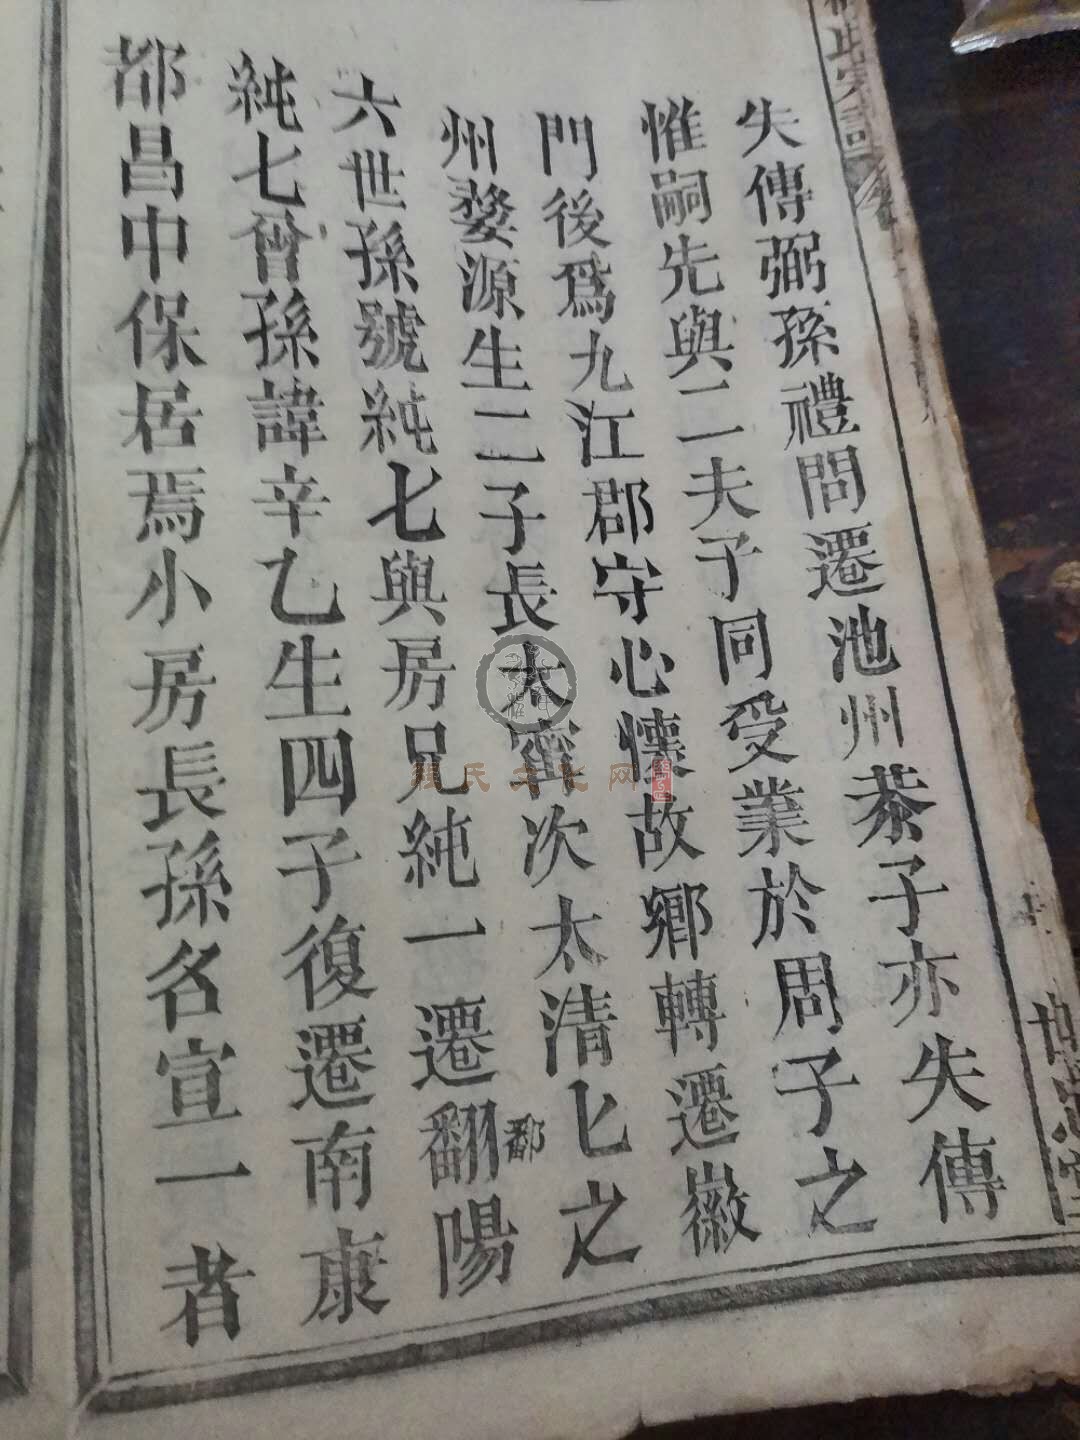 失傳弼孫禮問遷池州恭子亦失傳
惟嗣先與二夫子同受業於周子之
門後爲九江郡守心懷故鄉轉遷徽
州婺源生二子長太密次太清匕之
六世孫號純七與房兄純一遷翻陽
鄱
純七曾孫諱辛乙生四子復遷南康
都昌中保居焉小房長孫名宣一者
氏文化网